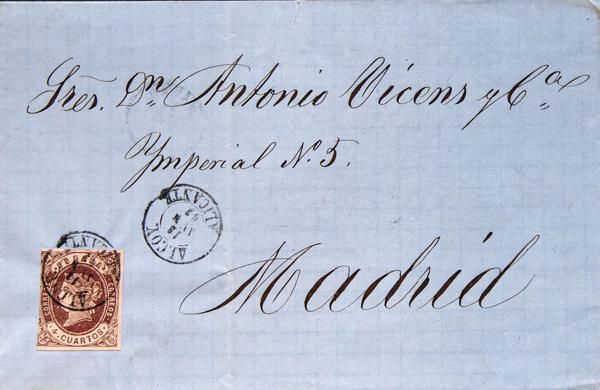 Sres. Dn. Antonio Vicens y Ca.
Ymperial No. 5.
Madrid
ALCOY
ALICANTE
CORREOS
4 CUARTOS